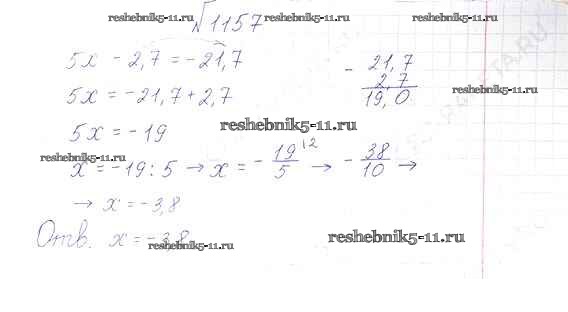 reshebnik5-11.ru reshebnik5-11.ru reshebnik5-11.ru
√1157
5x - 2,7 = -21,7
5x = -21,7 + 2,7
5x = -19
x = -19 : 5 → x = - 19/5 |2 → - 38/10 →
→ x = -3,8
Отв. x = -3,8
- 21,7
2,7
19,0
reshebnik5-11.ru
reshebnik5-11.ru
reshebnik5-11.ru
reshebnik5-11.ru
reshebnik5-11.ru